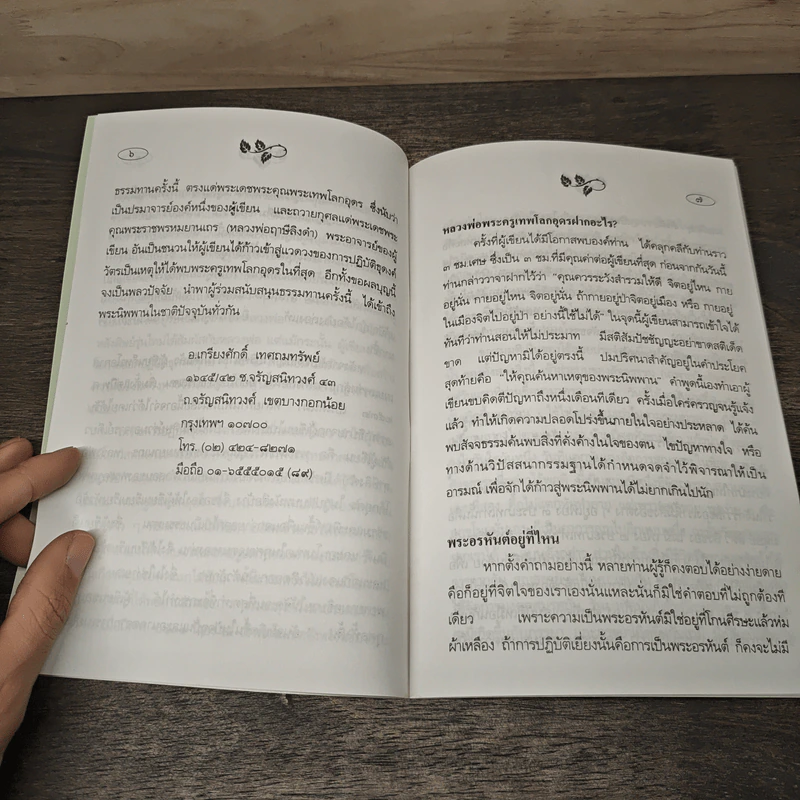 ๖
ธรรมทานครั้งนี้ ตรงแด่พระเดชพระคุณพระเทพโลกอุดร ซึ่งนับว่า
เป็นปรมาจารย์องค์หนึ่งของผู้เขียน และถวายกุศลแด่พระเดชพระ
คุณพระราชพรหมยานเถร (หลวงพ่อฤาษีลิงดำ) พระอาจารย์ของผู้
เขียน อันเป็นชนวนให้ผู้เขียนได้ก้าวเข้าสู่แดวงของการปฏิบัติธุดงค์
วัตรเป็นเหตุให้ได้พบพระครูเทพโลกอุดรในที่สุด อีกทั้งขอผลบุญนี้
จงเป็นพลวปัจจัย นำพาผู้ร่วมสนับสนุนธรรมทานครั้งนี้ ได้เข้าถึง
พระนิพพานในชาติปัจจุบันทั่วกัน
อ.เกรียงศักดิ์ เทศถมทรัพย์
๑๖๔๕/๔๒ ซ.จรัญสนิทวงศ์ ๔๓
ถ.จรัญสนิทวงศ์ เขตบางกอกน้อย
กรุงเทพฯ ๑๐๗๐๐
โทร. (๐๒) ๔๒๔-๘๒๗๑
มือถือ ๐๑-๖๕๕๕๐๑๕ (๘๙)
๗
หลวงพ่อพระครูเทพโลกอุดรฝากอะไร?
ครั้งที่ผู้เขียนได้มีโอกาสพบองค์ท่าน ได้คลุกคลีกับท่านราว
๓ ชม.เศษ ซึ่งเป็น ๓ ชม.ที่มีคุณค่าต่อผู้เขียนที่สุด ก่อนจากกันวันนี้
ท่านกล่าววาจาฝากไว้ว่า "คุณควรระวังสำรวมให้ดี จิตอยู่ไหน กาย
อยู่นั่น กายอยู่ไหน จิตอยู่นั่น ถ้ากายอยู่ป่าจิตอยู่เมือง หรือ กายอยู่
ในเมืองจิตไปอยู่ป่า อย่างนี้ใช้ไม่ได้" ในจุดนี้ผู้เขียนสามารถเข้าใจได้
ทันทีว่าท่านสอนให้ไม่ประมาท มีสติสัมปัชชัญญะอย่าขาดสติเด็ด
ขาด แต่ปัญหามีได้อยู่ตรงนี้ ปมปริศนาสำคัญอยู่ในคำประโยค
สุดท้ายคือ "ให้คุณค้นหาเหตุของพระนิพพาน" คำพูดนี้เองทำเอาผู้
เขียนขบคิดตีปัญหาถึงหนึ่งเดือนทีเดียว ครั้งเมื่อใคร่ครวญจนรู้แจ้ง
แล้ว ทำให้เกิดความปลอดโปร่งขึ้นภายในใจอย่างประหลาด ได้ค้น
พบสัจจธรรมค้นพบสิ่งที่คั่งค้างในใจของตน ไขปัญหาทางใจ หรือ
ทางด้านวิปัสสนากรรมฐานได้กำหนดจดจำไว้พิจารณาให้เป็น
อารมณ์ เพื่อจักได้ก้าวสู่พระนิพพานได้ไม่ยากเกินไปนัก
พระอรหันต์อยู่ที่ไหน
หากตั้งคำถามอย่างนี้ หลายท่านผู้รู้ก็คงตอบได้อย่างง่ายดาย
คือก็อยู่ที่จิตใจของเราเองนั่นแหละนั่นก็มิใช่คำตอบที่ไม่ถูกต้องที
เดียว เพราะความเป็นพระอรหันต์มิใช่อยู่ที่โกนศีรษะแล้วห่ม
ผ้าเหลือง ถ้าการปฏิบัติเยี่ยงนั้นคือการเป็นพระอรหันต์ ก็คงจะไม่มี